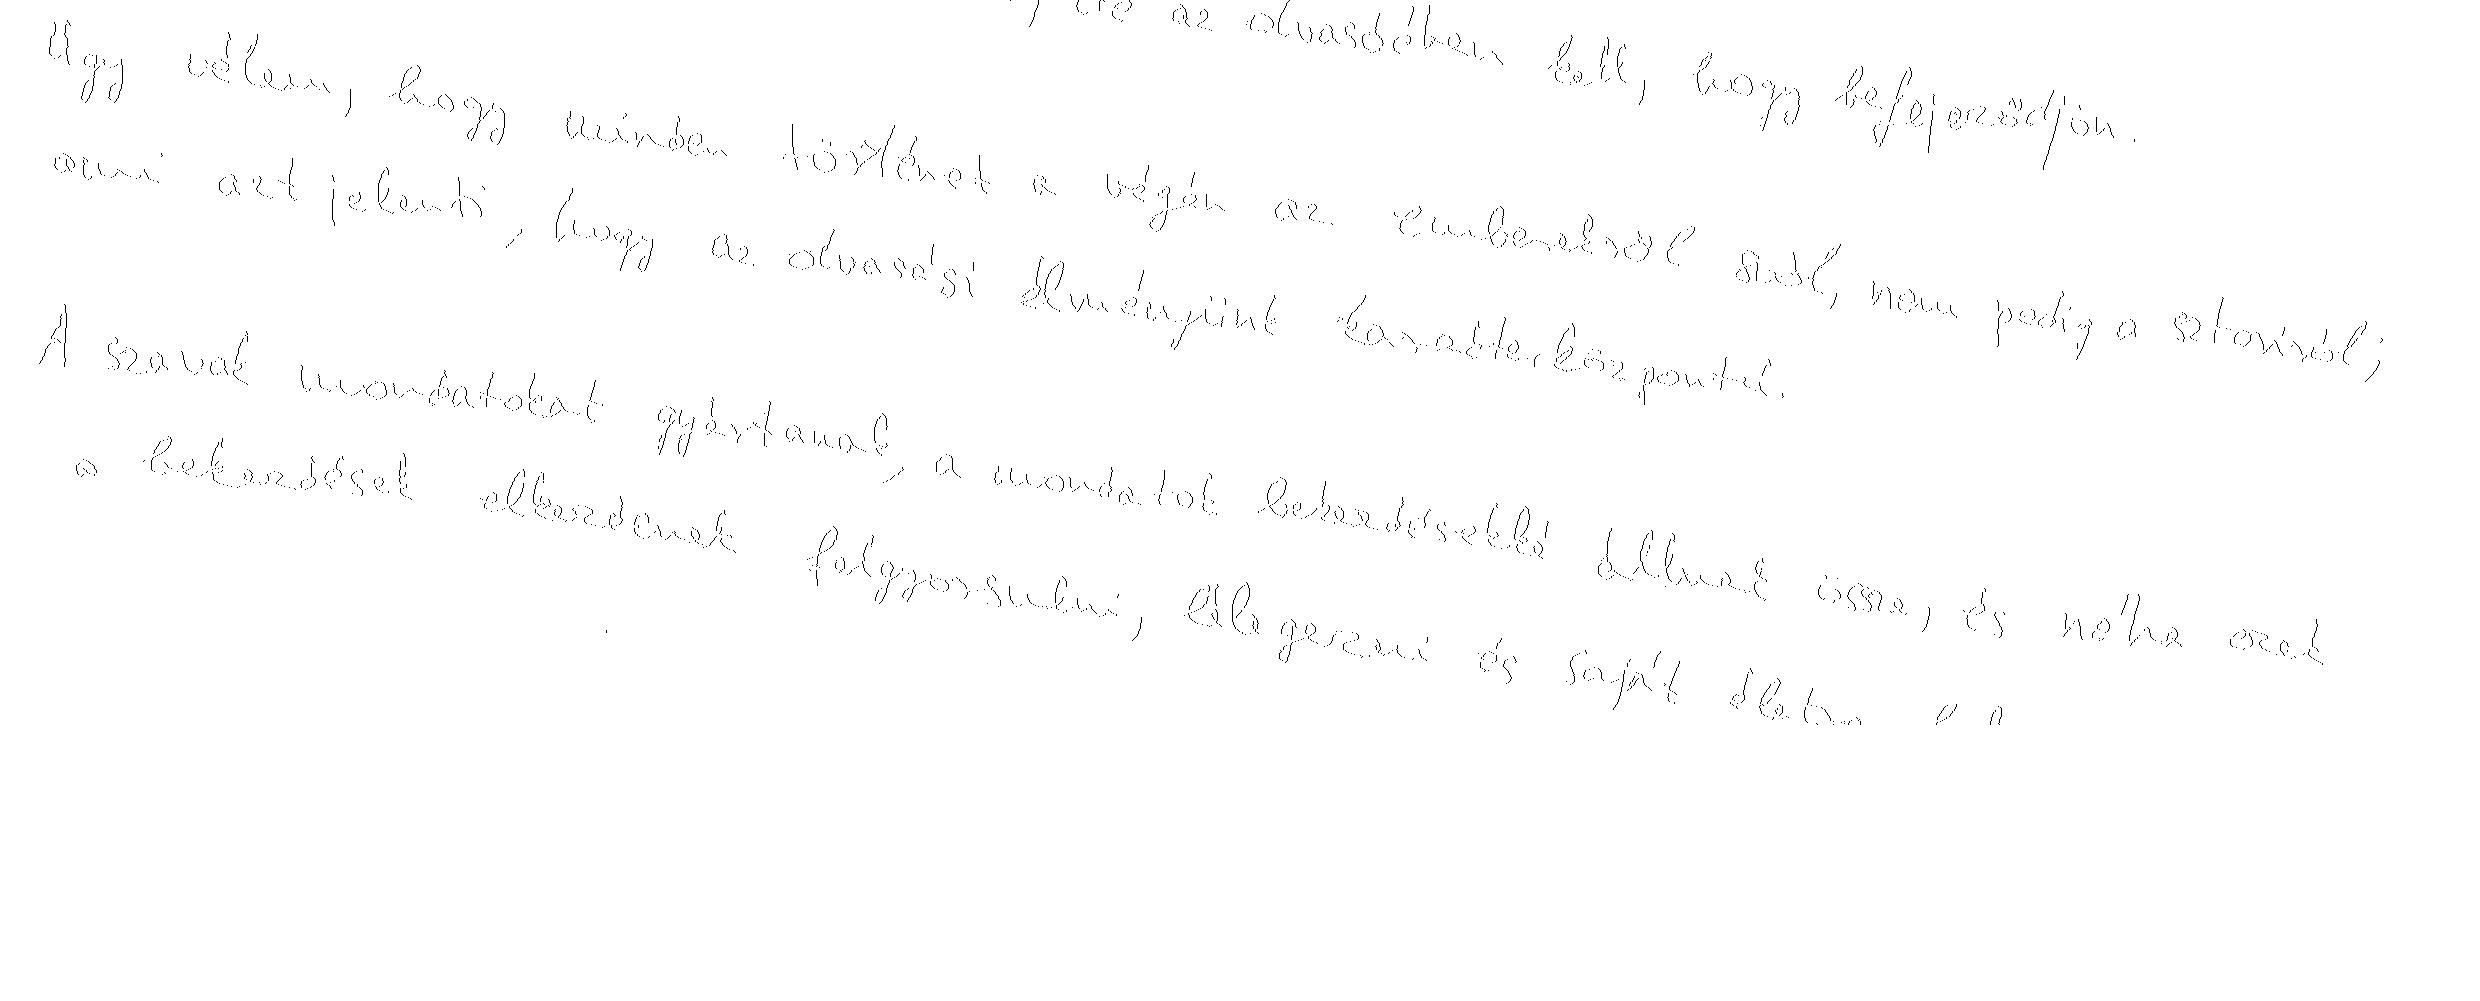 de az olvasóében kell, hogy befejeződjön.
Úgy vélem, hogy minden történet a végén az emberekről szól, nem pedig a sztoriról;
ami azt jelenti, hogy az olvasási élményünk karakterközpontú.
A szavak mondatokat gyártanak, a mondatok bekezdésekké állnak össze, és néha ezek
a bekezdések elkezdenek felgyorsulni, lélegezni és saját életre